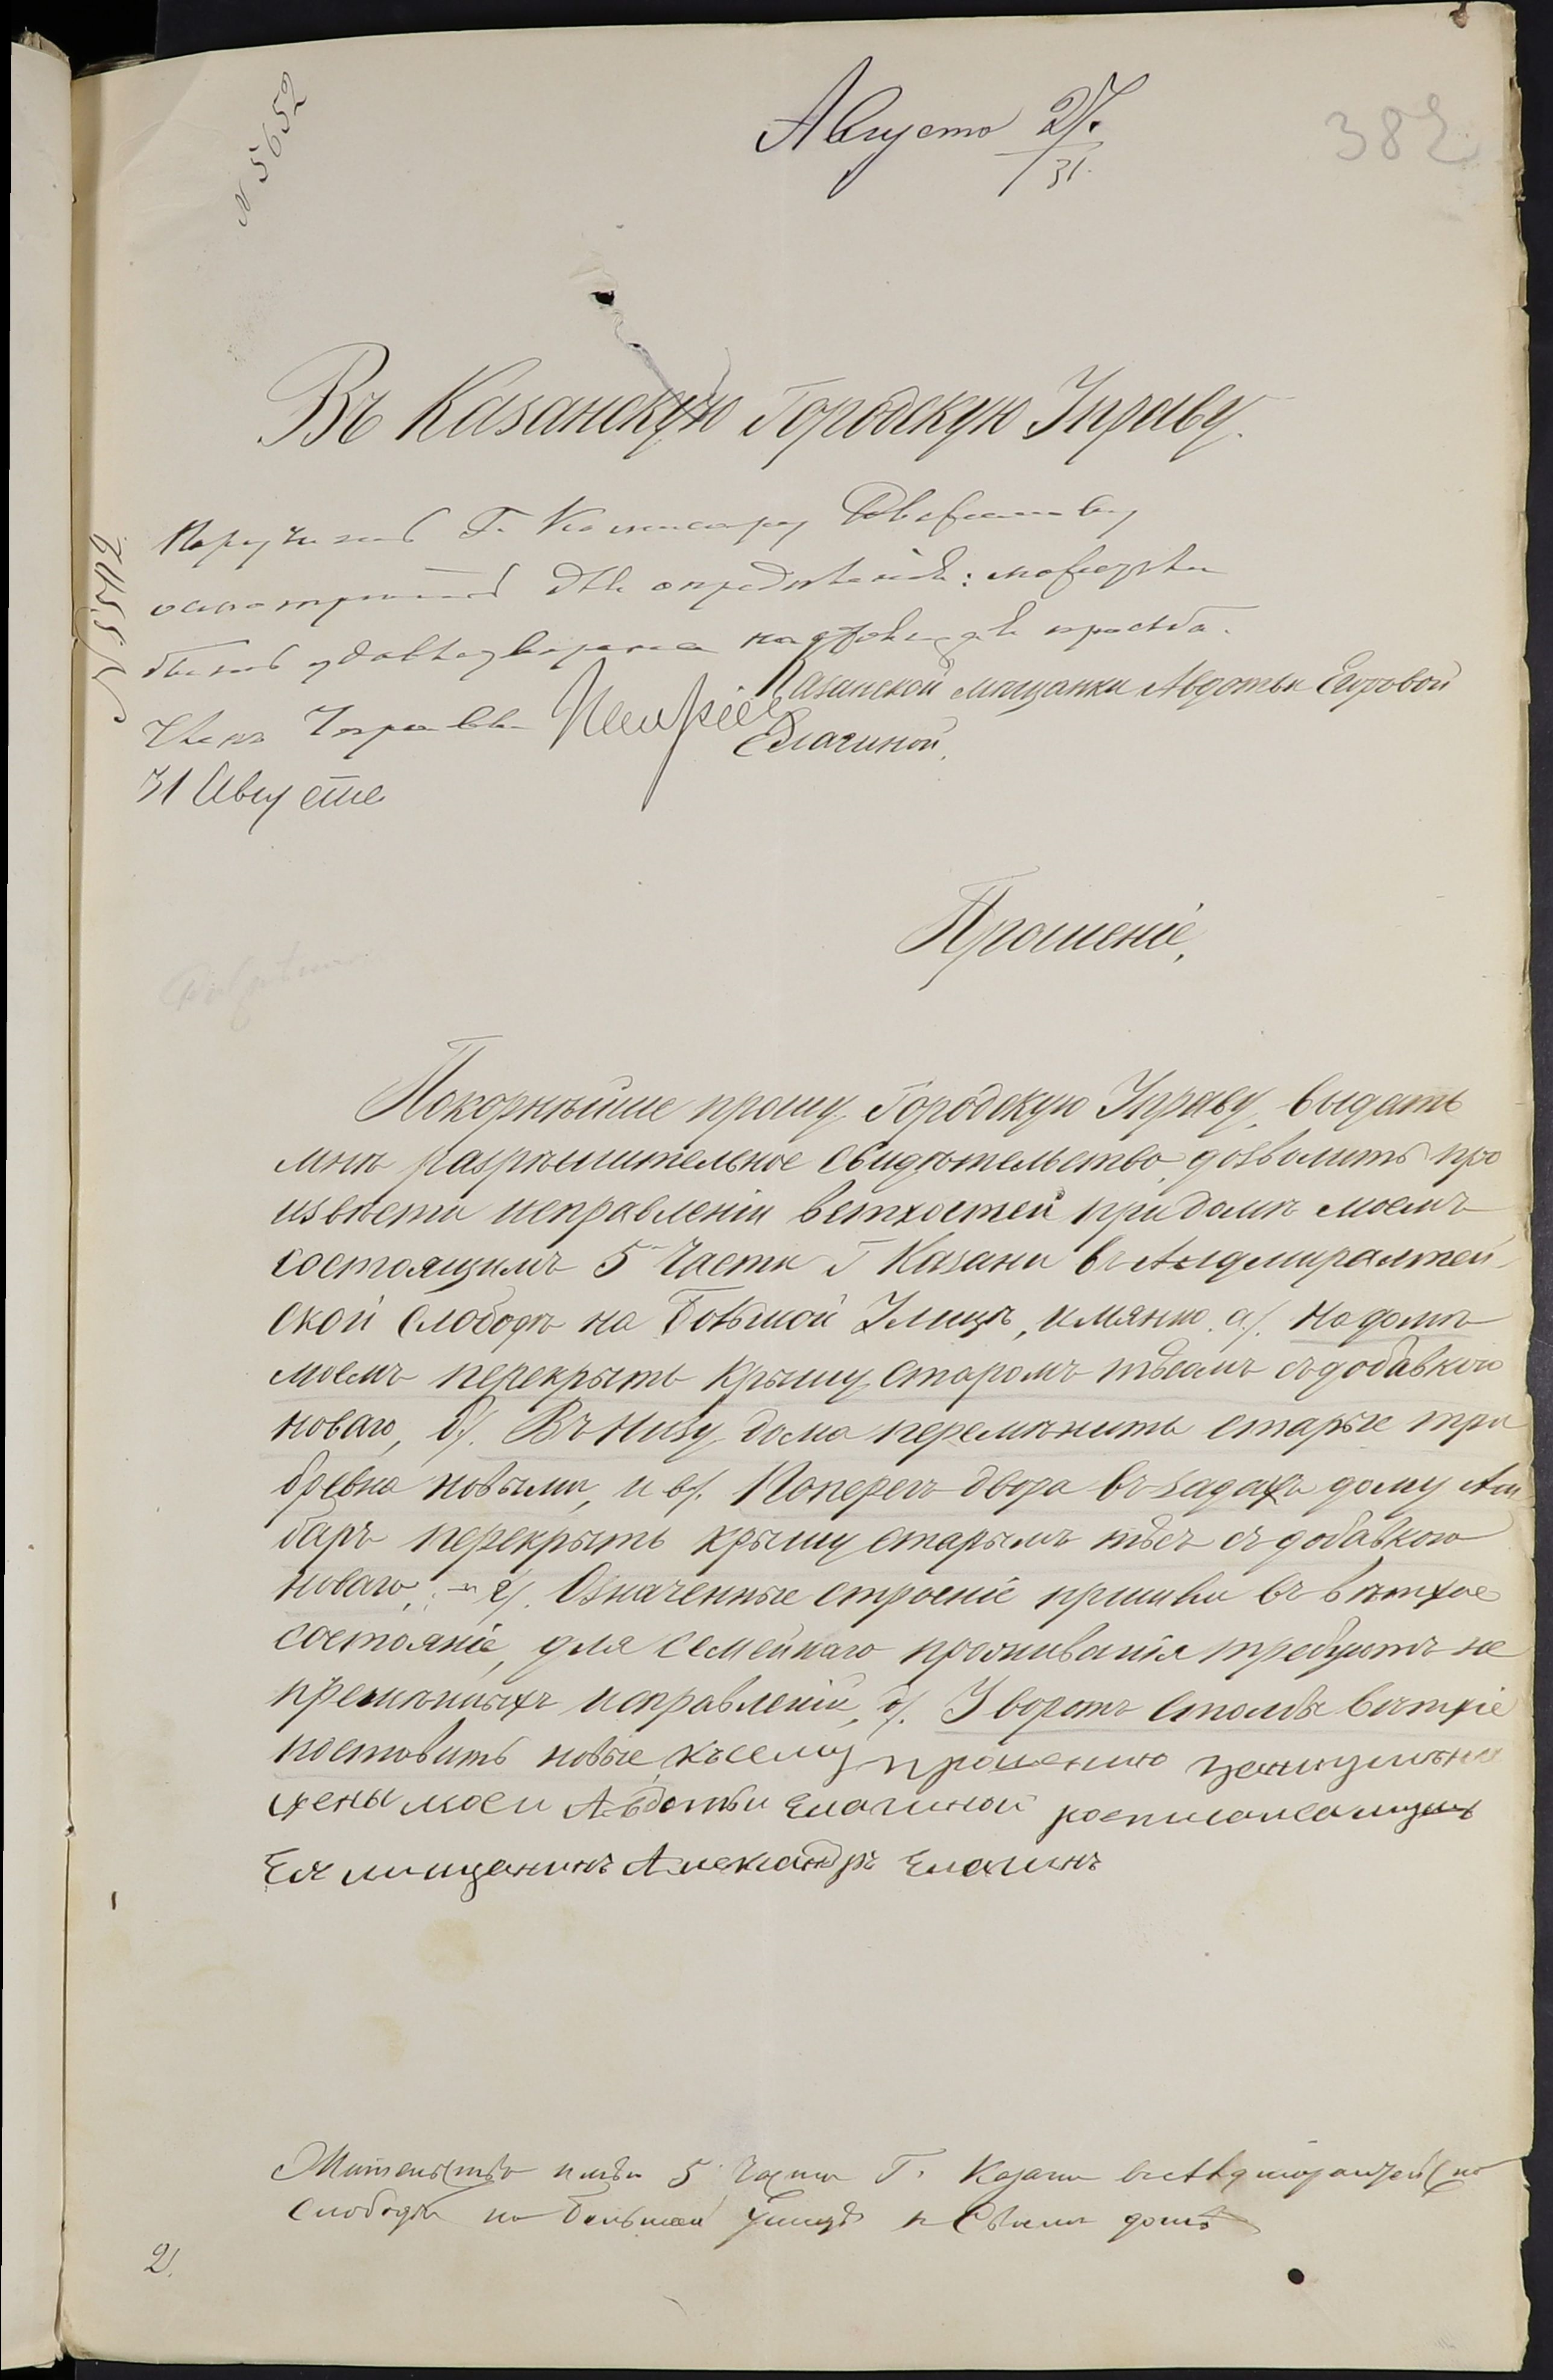 N 5652
Августа 27.
31.
382
Въ Казанскую Городскую Управу.
Поручить Г.
осмотреть для определенія: может ли
быть удовлетворена настоящая просьба.
Членъ Управы
31 Августа
N 5512
Казанской мещанки Авдотьи Егоровой
Елагиной.
Прошеніе,
Покорнѣйше прошу Городскую Управу, выдать
мнѣ разрѣшительное свидѣтельство дозволить про
извѣсти исправленіи ветхостей при домѣ моемъ
состоящимъ 5 части Г Казани въ Адмиралтей-
ской слободѣ на Большой Улицѣ, имянно. а/. На домѣ
моемъ перекрыть крышу старомъ тѣсомъ съ добавкою
новаго, б/. Въ низу дома перемѣнить старые три
бревна новыми, и в/. Поперегъ двора въ задахъ дому Ам
баръ перекрыть крышу старымъ тѣсъ съ добавкою
новаго, - г/. Означенные строеніе пришли въ вѣтхое
состояніе, для семейнаго проживанія требуютъ не
премѣнныхъ исправленій, д/. У воротъ столбы вѣтхіе
поставить новые, къ сему прошению
жены моеи Авдотьи Елагиной росписалса мужъ
Еѧ мищенинъ Александръ Елагинъ
Жительство имѣю 5 части Г. Казани въ Адмиралтейской
слободѣ на Большой улицѣ в своемъ домѣ
2.